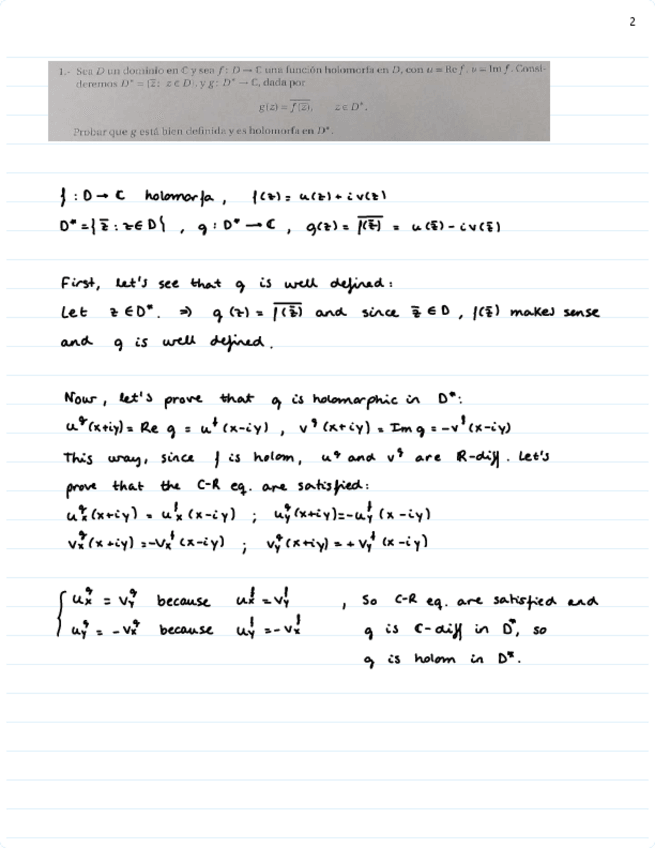 2
1.- Sea D un dominio en ℂ y sea f : D → ℂ una función holomorfa en D, con u = Re f, v = Im f. Consi-
deremos D* = {z̅ : z ∈ D}, y g : D* → ℂ, dada por
g(z) = \overline{f(z̅)}, z ∈ D*.
Probar que g está bien definida y es holomorfa en D*.
f : D → ℂ holomorfa, f(z) = u(z) + i v(z)
D* = {z̅ : z ∈ D}, g : D* → ℂ, g(z) = \overline{f(z̅)} = u(z̅) - i v(z̅)
First, let's see that g is well defined:
Let z ∈ D*. ⇒ g(z) = \overline{f(z̅)} and since z̅ ∈ D, f(z̅) makes sense
and g is well defined.
Now, let's prove that g is holomorphic in D*:
u^g(x+iy) = Re g = u^f(x-iy), v^g(x+iy) = Im g = -v^f(x-iy)
This way, since f is holom, u^g and v^g are R-diff. Let's
prove that the C-R eq. are satisfied:
u_x^g(x+iy) = u_x^f(x-iy) ; u_y^g(x+iy) = -u_y^f(x-iy)
v_x^g(x+iy) = -v_x^f(x-iy) ; v_y^g(x+iy) = +v_y^f(x-iy)
{ u_x^g = v_y^g because u_x^f = v_y^f , so C-R eq. are satisfied and
u_y^g = -v_x^g because u_y^f = -v_x^f g is C-diff in D*, so
g is holom in D*.